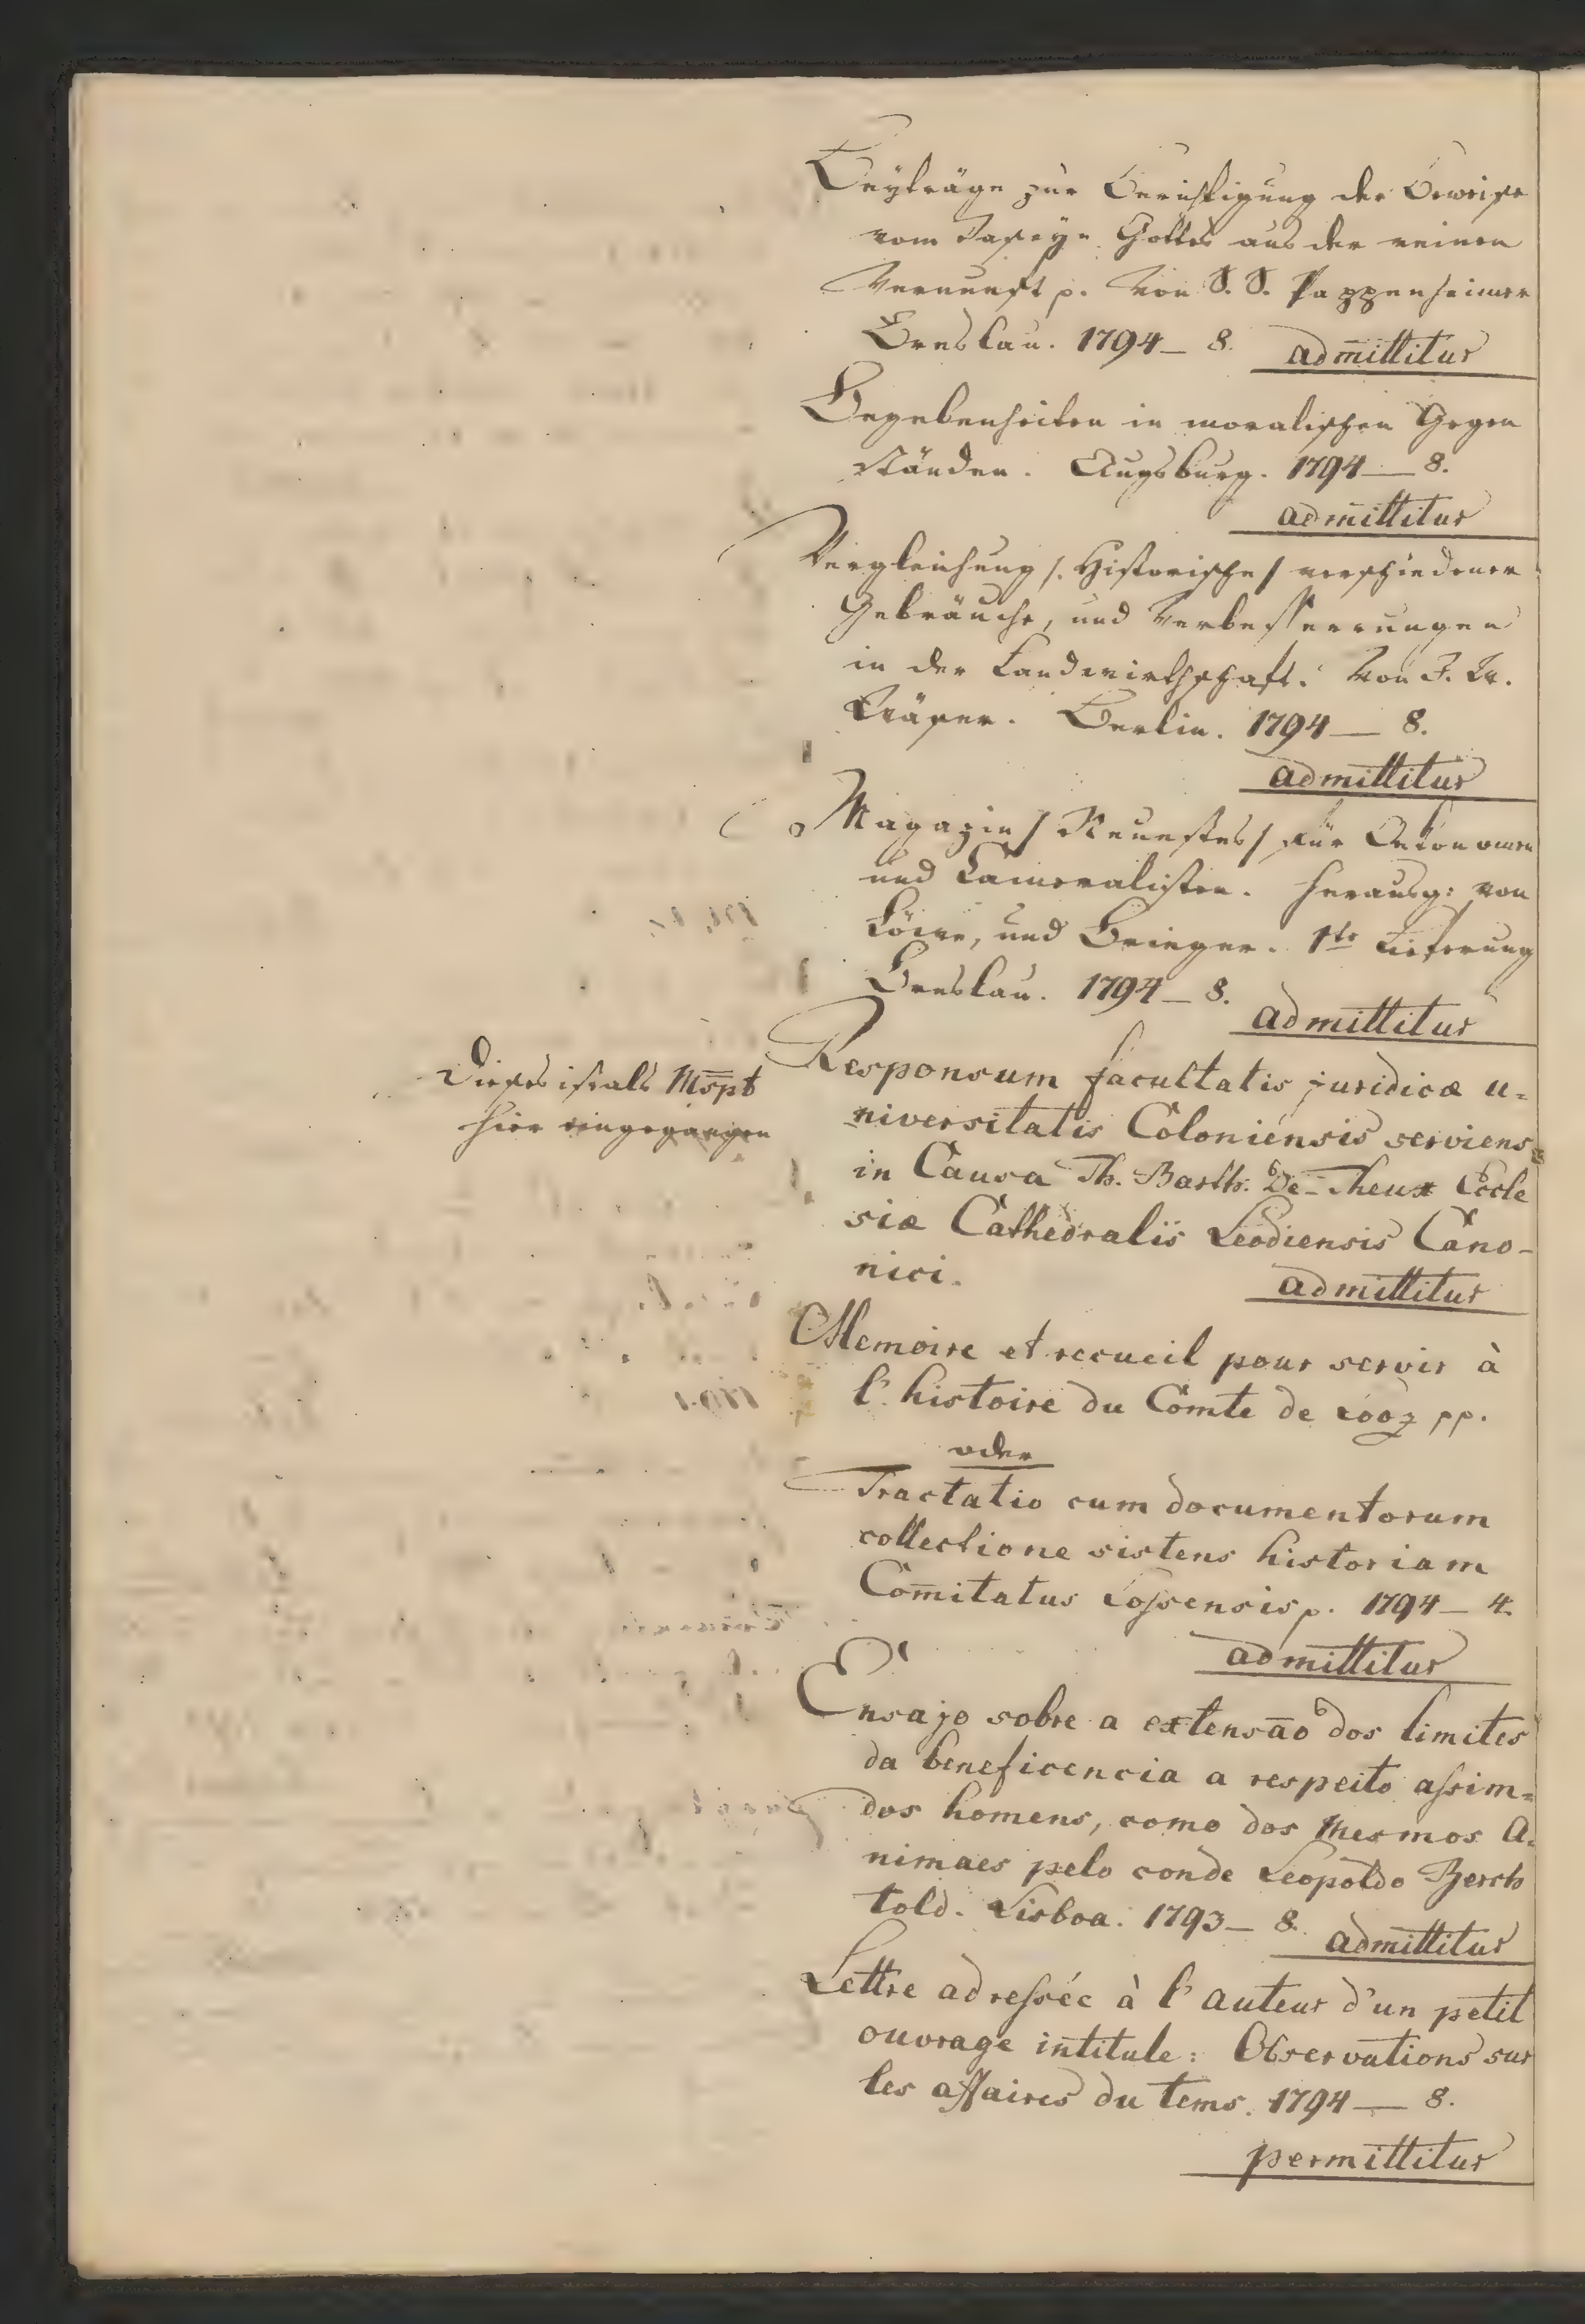 Beyträge zur Berichtigung der Beweise
vom Daseyn Gottes aus der reinen
Vernunft p. Von S. S. Pappenheimer
Breslau. 1794 — 8. admittitur
Begebenheiten in moralischen Gegen
ständen. Augsburg. 1794 — 8.
admittitur
Vergleichung /. Historische / verschiedener
Gebräuche, und Verbesserungen
in der Landwirthschaft. Von J. W.
Berlin. 1794 — 8.
admittitur
Magazin / Neuestes / für Oekonomen
und Cameralisten. herausg: von
Löwe, und Brieger. 1te Lieferung
Breslau. 1794 — 8.
admittitur
Dieses ist als Mspt
hier eingegangen
Responsum facultatis juridicæ u=
niversitatis Coloniensis serviens
in Causa Th. Barth. De-Theux Eccle
siæ Cathedralis Leodiensis Cano-
nici.
admittitur
Memoire et recueil pour servir à
l'histoire du Comte de Looz pp.
oder
Tractatio cum documentorum
collectione sistens historiam
Com̄itatus Lossensis p. 1794 — 4.
admittitur
Ensajo sobre a extensāo dos limites
da beneficencia a respeito assim=
dos homens, como dos mesmos A=
nimaes pelo conde Leopoldo Berch
told. Lisboa. 1793 — 8.
admittitur
Lettre adressée à l'auteur d'un petit
ouvrage intitule: Observations sur
les affaires du tems. 1794 — 8.
permittitur